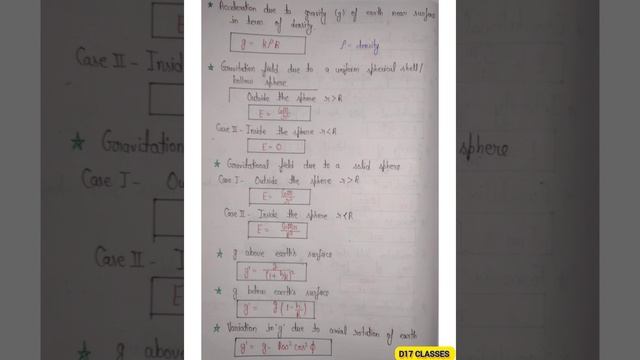 ★ Acceleration due to gravity (g) of earth near surface
in terms of density
g = kρR
ρ = density
★ Gravitation field due to a uniform spherical shell/
hollow sphere
Outside the sphere r>R
E = GM/r²
Case II - Inside the sphere r<R
E = 0
★ Gravitational field due to a solid sphere
Case I - Outside the sphere r>R
E = GM/r²
Case II - Inside the sphere r<R
E = GMr/R³
★ g above earth's surface
g' = g/(1+h/R)²
★ g below earth's surface
g' = g(1-h/R)
★ Variation in 'g' due to axial rotation of earth
g' = g - Rω² cos² φ
D17 CLASSES
Case II - Insid
★ Gravitation
Case I - Ou
Case II - I
E
★ g above
sphere